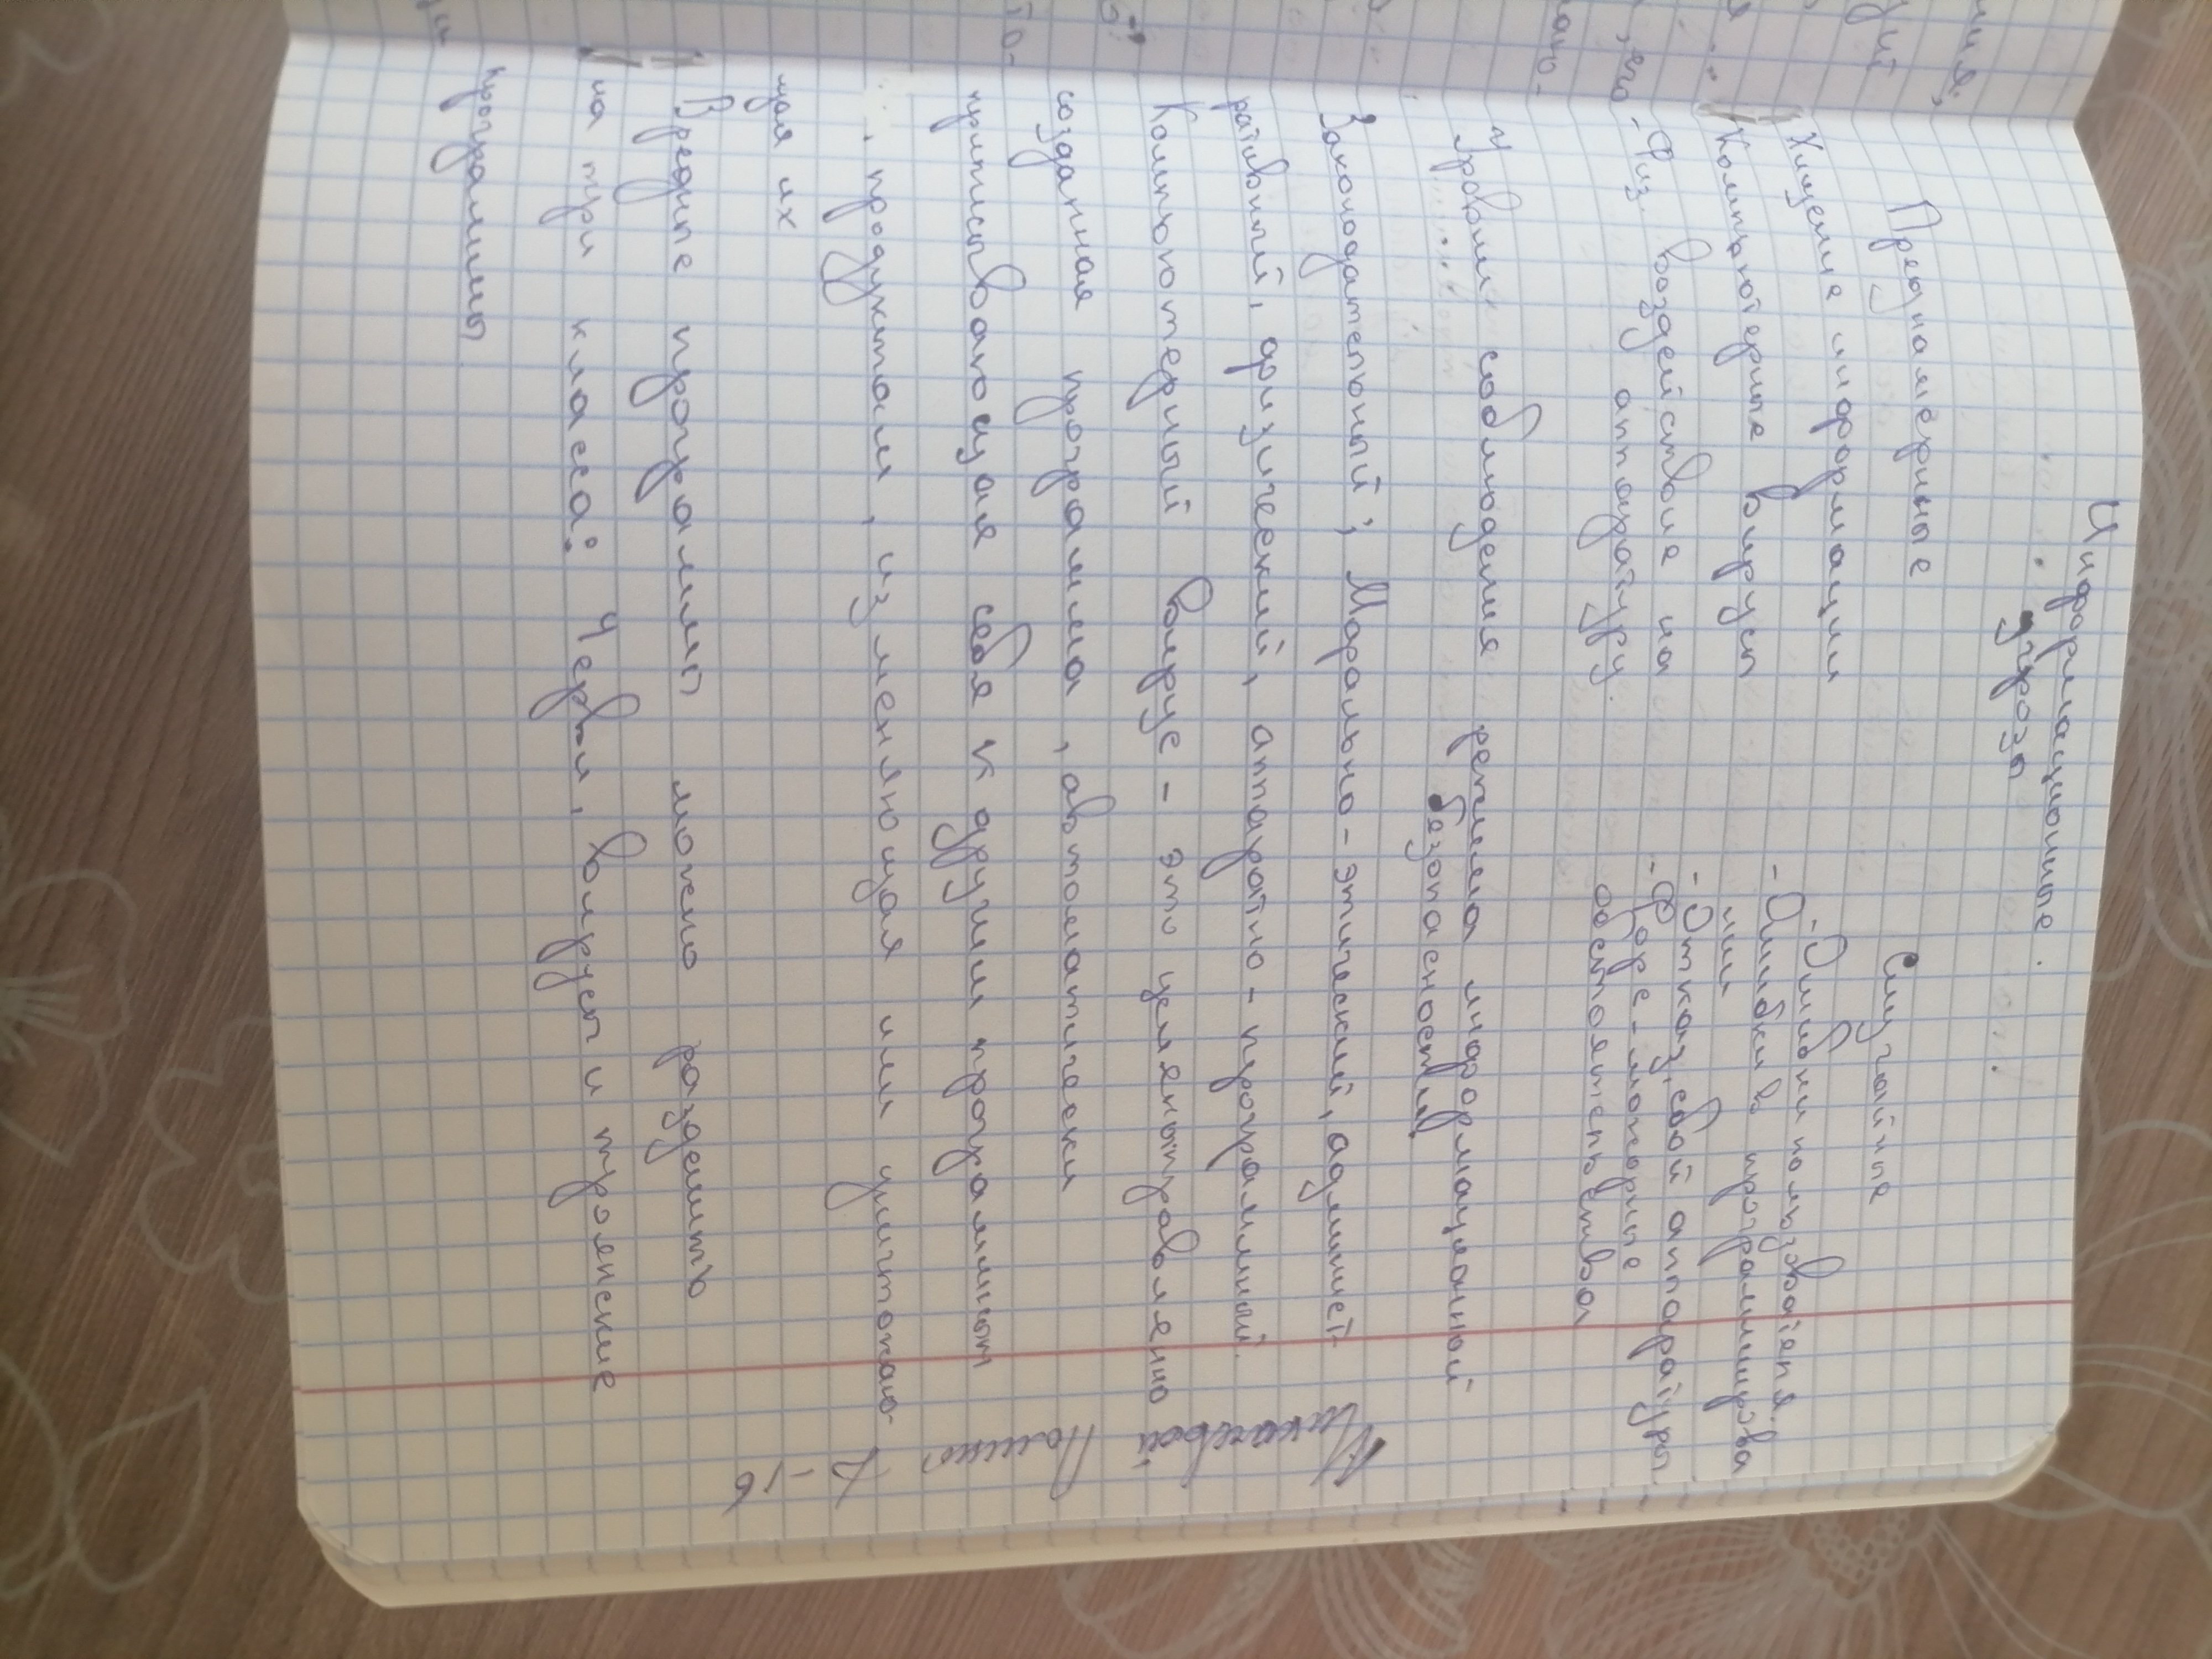 Информационные.
угрозы
Преднамерные
Случайные
Хищение информации
Компьютерные вирусы
-Физ. воздействие на
аппаратуру.
-Ошибки пользователя.
-Ошибки в программирова
нии
-Отказ, сбой аппаратуры
-Форс-мажорные
обстоятельства
Уровни соблюдения режима информационной
безопасности
Законодательный; Морально-этический, админист-
ративный, физический, аппаратно-программный.
Компьютерный вирус - это целенаправленно
созданная программа, автоматически
приписывающая себя к другим программным
продуктам, изменяющая или уничтожаю-
щая их
Вредные программы можно разделить
на три класса: Черви, вирусы и троянские
программы